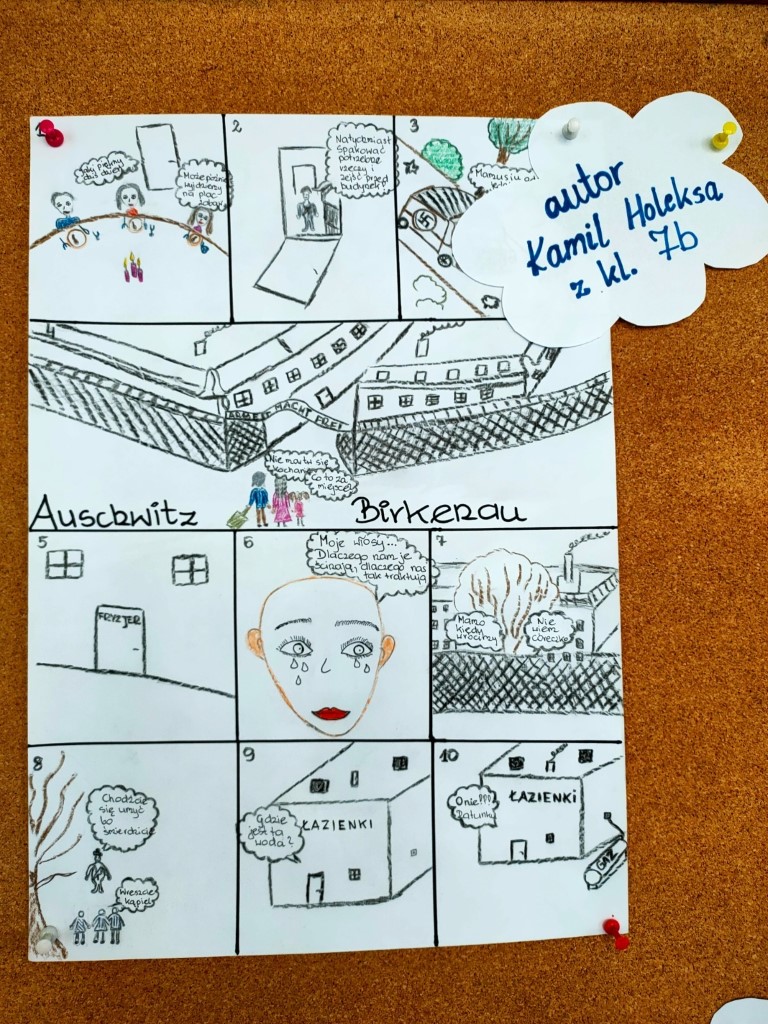 autor
Kamil Holeksa
z kl. 7b
1
Jaki piękny
dziś dzień
Może później
wyjdziemy
na plac
zabaw
2
Natychmiast
spakować
potrzebne
rzeczy i
zejść przed
budynek
3
Mamusiu
4
ARBEIT MACHT FREI
Nie martw się
kochanie
Co to za
miejsce?
Auschwitz Birkenau
5
FRYZJER
6
Moje włosy...
Dlaczego nam je
ścinają, dlaczego nas
tak traktują
7
Mamo
kiedy
wrócimy
Nie
wiem
córeczko
8
Chodźcie
się umyć
bo
śmierdzicie
Wreszcie
kąpiel
9
Gdzie
jest ta
woda?
ŁAZIENKI
10
O nie!!!
Ratunku
ŁAZIENKI
GAZ